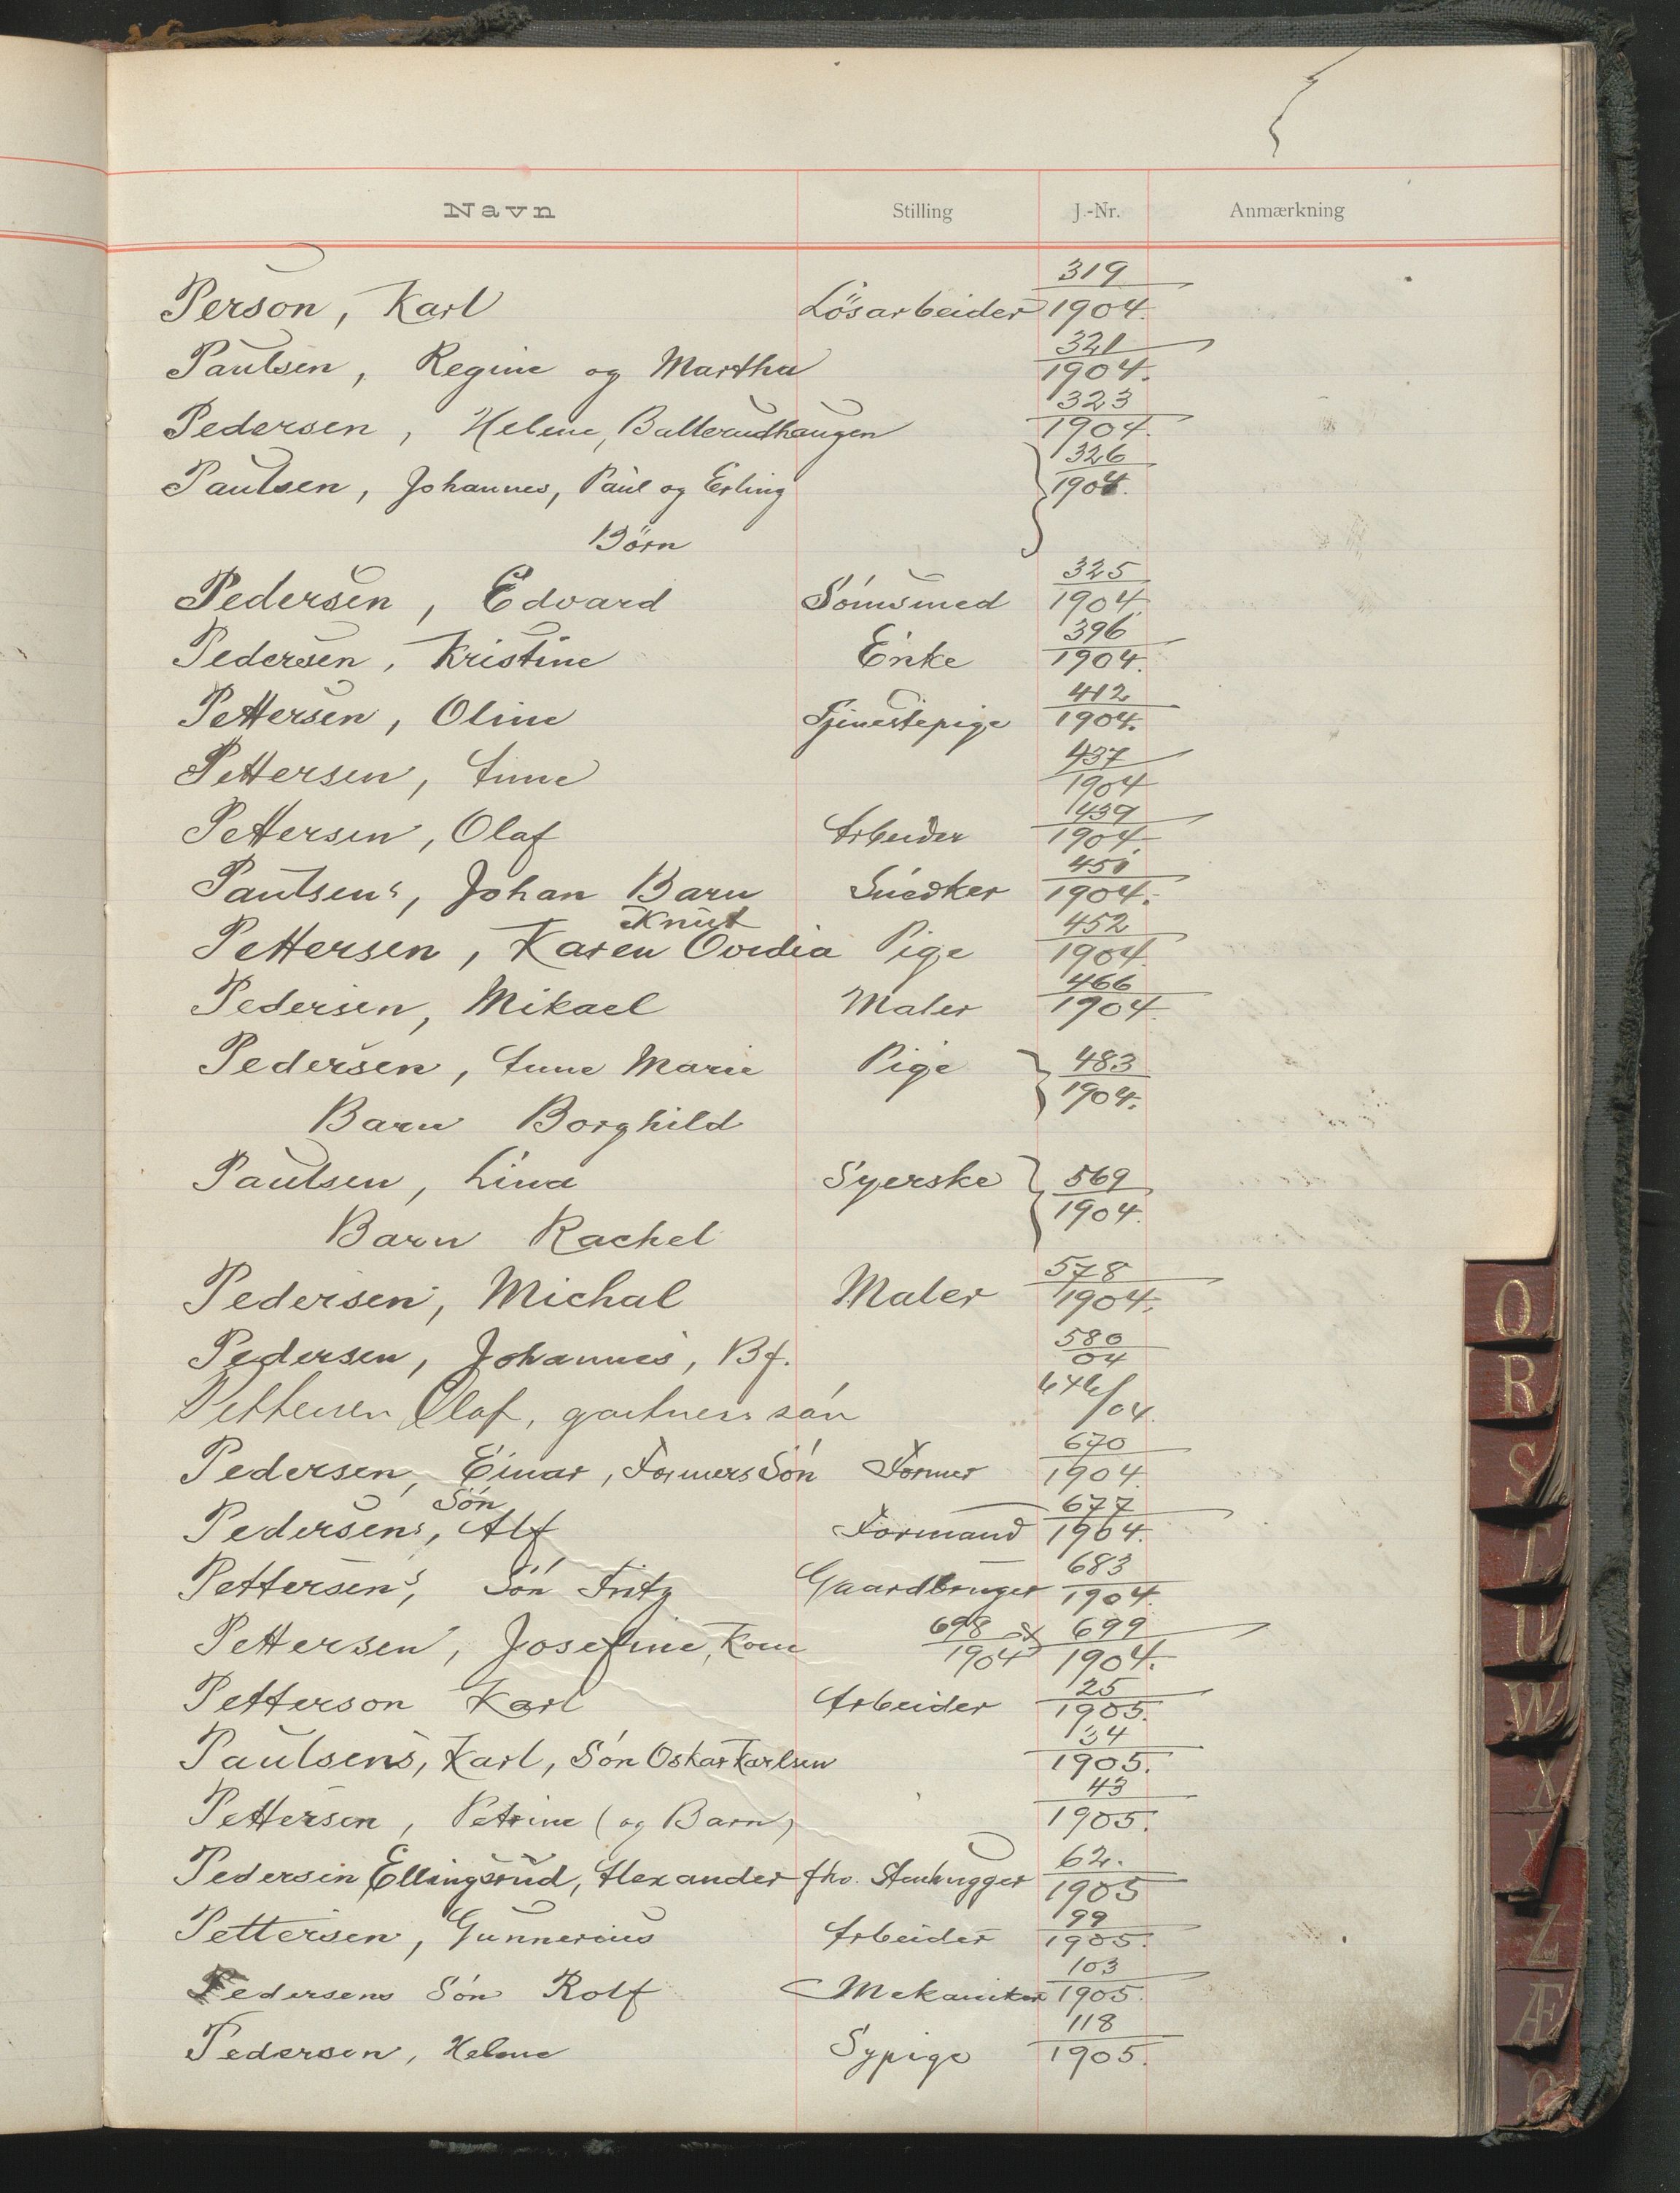 Navn Stilling J.-Nr. Anmærkning
Person, Karl Lösarbeider 319/1904.
Paulsen, Regine og Martha 321/1904.
Pedersen, Helene, Ballerudhaugen 323/1904.
Paulsen, Johannes, Paul og Erling 326/1904.
Börn
Pedersen, Edvard Sömsmed 325/1904
Pedersen, Kristine Enke 396/1904.
Pettersen, Oline Tjenestepige 412/1904.
Pettersen, Anne 437/1904
Pettersen, Olaf Arbeider 439/1904.
Paulsens, Johan Barn Snedker 451/1904.
Knut
Pettersen, Karen Ovidia Pige 452/1904.
Pedersen, Mikael Maler 466/1904.
Pedersen, Anne Marie Pige 483/1904.
Barn Borghild
Paulsen, Lina Syerske 569/1904.
Barn Rachel
Pedersen, Michal Maler 578/1904.
Pedersen, Johannes, Bf. 580/04
Pettersen Olaf, gartners sön /04.
Pedersen, Einar, Formers Sön Former 670/1904
Sön
Pedersens, Alf Formand 677/1904.
Pettersens, Sön Fritz Gaardbruger 683/1904.
Pettersen, Josefine, Kone 698/1904 & 699/1904.
Petterson Karl Arbeider 25/1905.
Paulsens, Karl, Sön Oskar Karlsen 34/1905.
Pettersen, Petrine (og Barn) 43/1905.
Pedersen Ellingsrud, Alexander fhv. Stenhugger 62./1905
Pettersen, Gunnerius Arbeider 99/1905.
Pedersens Sön Rolf Mekaniker 103/1905.
Pedersen, Helene Sypige 118/1905.
O
R
S
T
U
W
X
Z
Æ
Ø